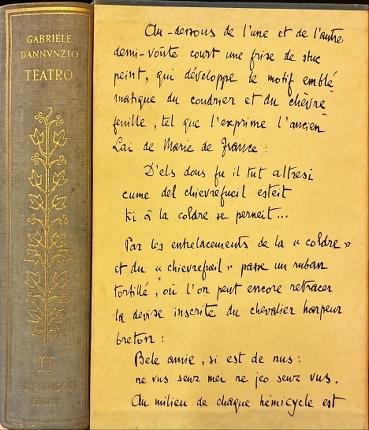 GABRIELE
D'ANNVNZIO
TEATRO
II
Au-dessous de l'une et de l'autre
demi-voûte court une frise de stuc
peint, qui développe le motif emblé
matique du coudrier et du chèvre
feuille, tel que l'exprime l'ancien
Lai de Marie de France:
D'els dous fu il tut altresi
cume del chievrefueil esteit
ki à la coldre se perneit...
Par les entrelacements de la "coldre"
et du "chievrefueil" passe un ruban
tortillé, où l'on peut encore retracer
la devise inscrite du chevalier harpeur
breton:
Bele amie, si est de nus:
ne vus senz mei ne jeo senz vus.
Au milieu de chaque hémicycle est